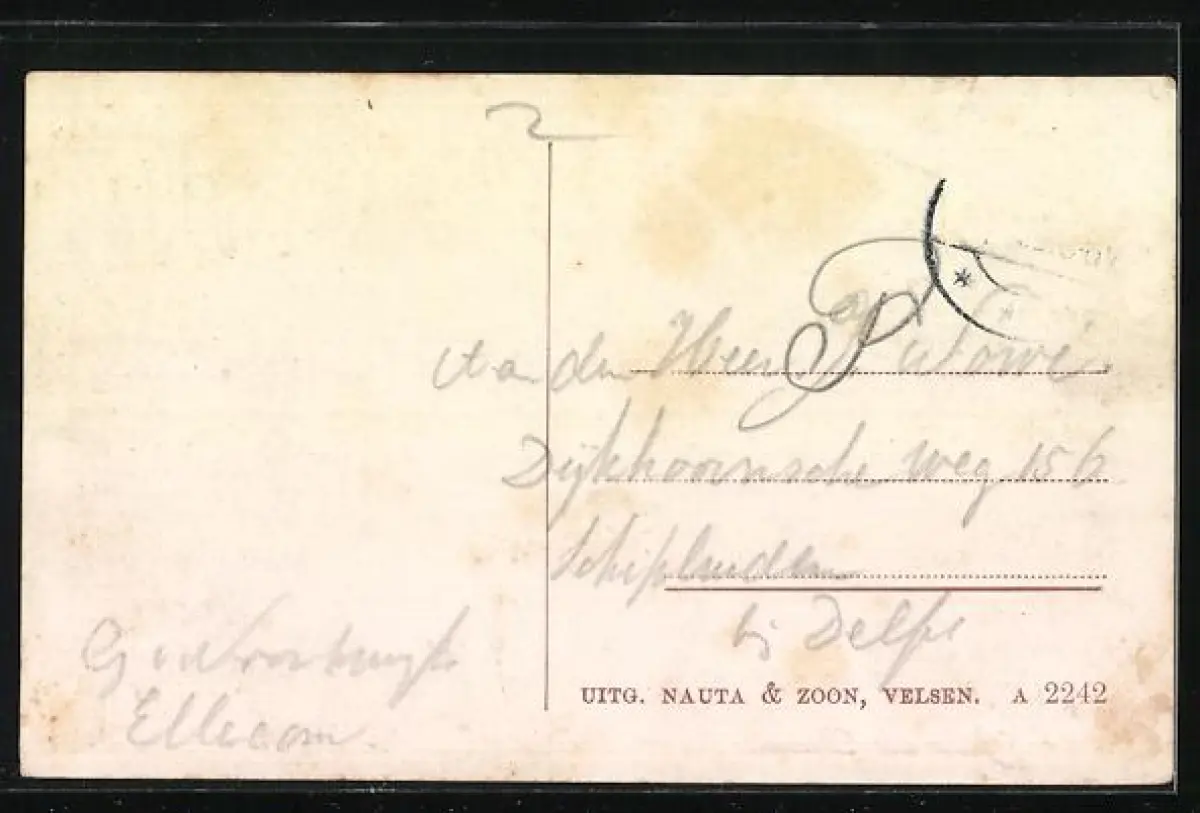 Aan den Heer
Dijkhoornsche weg 156
Schipluiden
bij Delft
Ellecom.
UITG. NAUTA & ZOON, VELSEN. A 2242